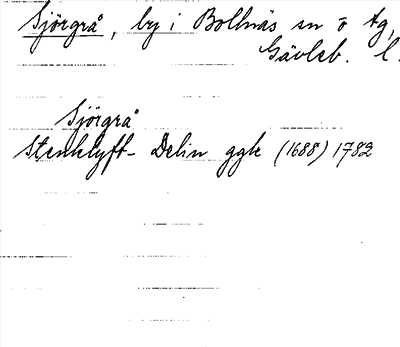 Sjörgrå, by i Bollnäs sn o tg,
Gävleb. l.
Sjörgrå
Stenklyft- Delin ggk (1688) 1782